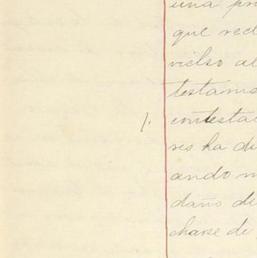 una pr
que red
vielso al
testame
1.
contesta
res ha di
ando m
daño de
charse de